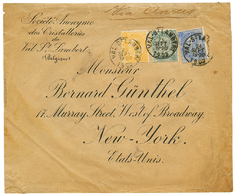 Via Anvers
Société Anonyme
des Cristalleries
du
Val St. Lambert
(Belgique)
Monsieur
Bernard Günthel
17, Murray Street, West of Broadway,
New-York.
Etats-Unis.